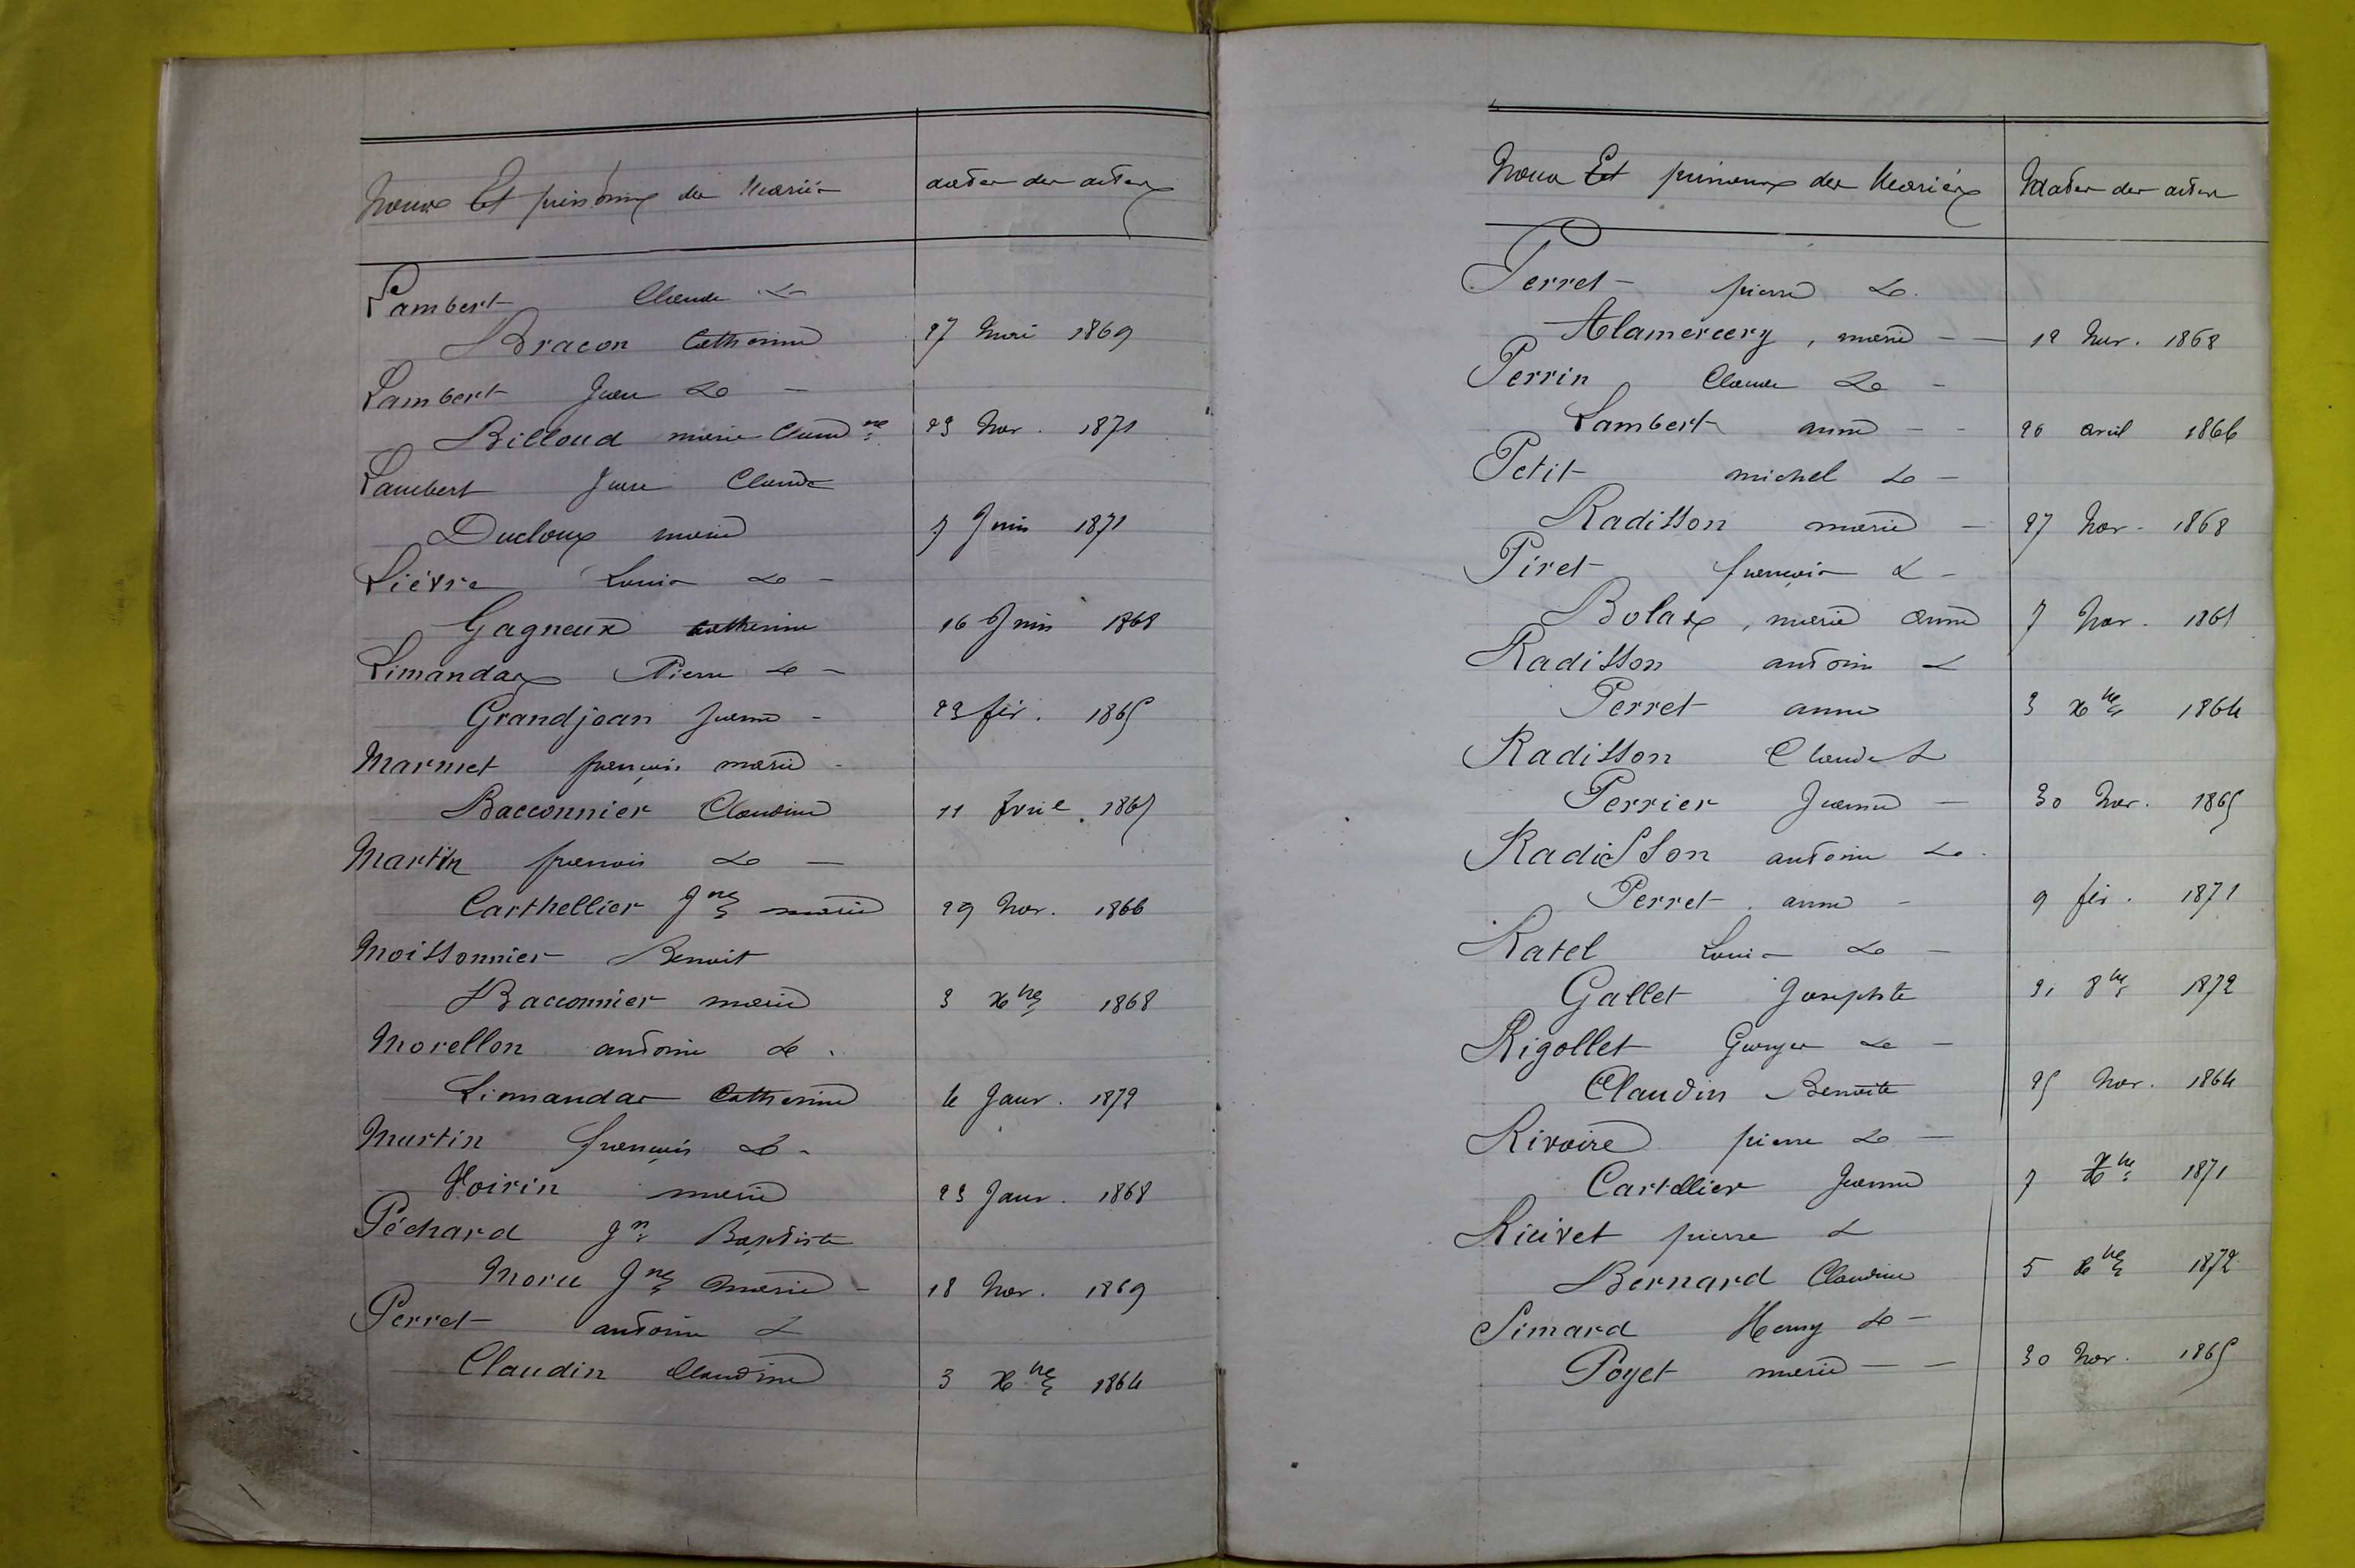 Noms Et prénoms des Mariés
dates des actes
Lambert Claude &
Bracon Catherine 27 Mai 1869
Lambert Jean &
Billoud marie Claud.ne 23 Nov. 1871
Lambert Jean Claude
Ducloux marie 7 Juin 1871
Lièvre Louis &
Gagneux Catherine 16 Juin 1868
Limandas Pierre &
Grandjean Jeanne 23 fév. 1865
Marmet françois marie
Bacconnier Claudine 11 1865
Martin françois &
Carthellier Jne marie 29 Nov. 1866
Moissonnier Benoit
Bacconnier marie 3 Xbre 1868
Morellon antoine &
Limandas Catherine 4 Janv. 1872
Martin françois &
Voirin marie 23 Janv. 1868
Péchard Jn Baptiste
Morel Jne marie 18 Nov. 1869
Perret antoine &
Claudin Claudine 3 Xbre 1864
Noms Et prénoms des Mariés
Dates des actes
Perret pierre &
Alamercery, marie 12 Nov. 1868
Perrin Claude &
Lambert anne 26 avril 1866
Petit michel &
Radisson marie 27 Nov. 1868
Piret françois &
Bolax, marie anne 7 Nov. 1861
Radisson antoine &
Perret anne 3 Xbre 1864
Radisson Claude &
Perrier Jeanne 30 Nov. 1865
Radisson antoine &
Perret anne 9 fév. 1871
Ratel Louis &
Gallet Josephte 31 8bre 1872
Rigollet Georges &
Claudin Benoite 25 Nov. 1864
Rivoire pierre &
Cartellier Jeanne 7 Xbre 1871
pierre &
Bernard Claudine 5 Xbre 1872
Simard Henry &
Poyet marie 30 Nov. 1865